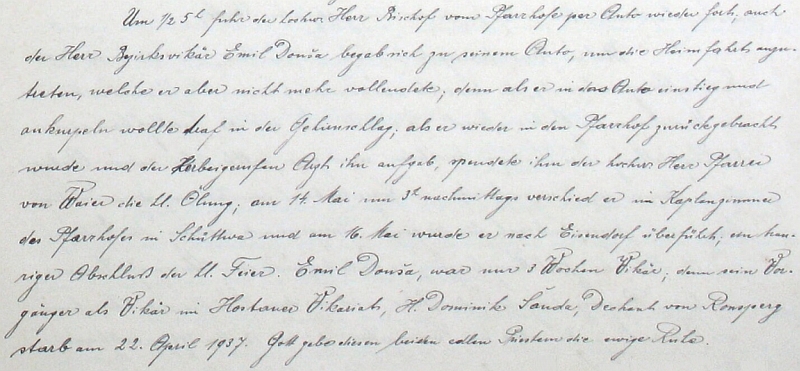 Um 1/2 5h fuhr der hochw. Herr Bischof vom Pfarrhofe per Auto wieder fort; auch
der Herr Bezirksvikär Emil Douša begab sich zu seinem Auto, um die Heimfahrt anzu-
treten, welche er aber nicht mehr vollendete; denn als er in das Auto einstieg und
ankurpeln wollte traf in der Gehirnschlag; als er wieder in den Pfarrhof zurückgebracht
wurde und der Herbeigerufen Arzt ihn aufgab, spendete ihm der hochw. Herr Pfarrer
von Waier die hl. Ölung; am 14. Mai um 3h nachmittags verschied er im Kaplanzimmer
des Pfarrhofes in Schüttwa und am 16. Mai wurde er nach Eisendorf überführt; ein trau-
riger Abschluß der hl. Feier. Emil Douša, war nur 3 Wochen Vikär; denn sein Vor-
gänger als Vikär im Hostauer Vikariats, H. Dominik Sauda, Dechant von Ronsperg
starb am 22. April 1937. Gott gebe diesen beiden edlen Priestern die ewige Ruhe.